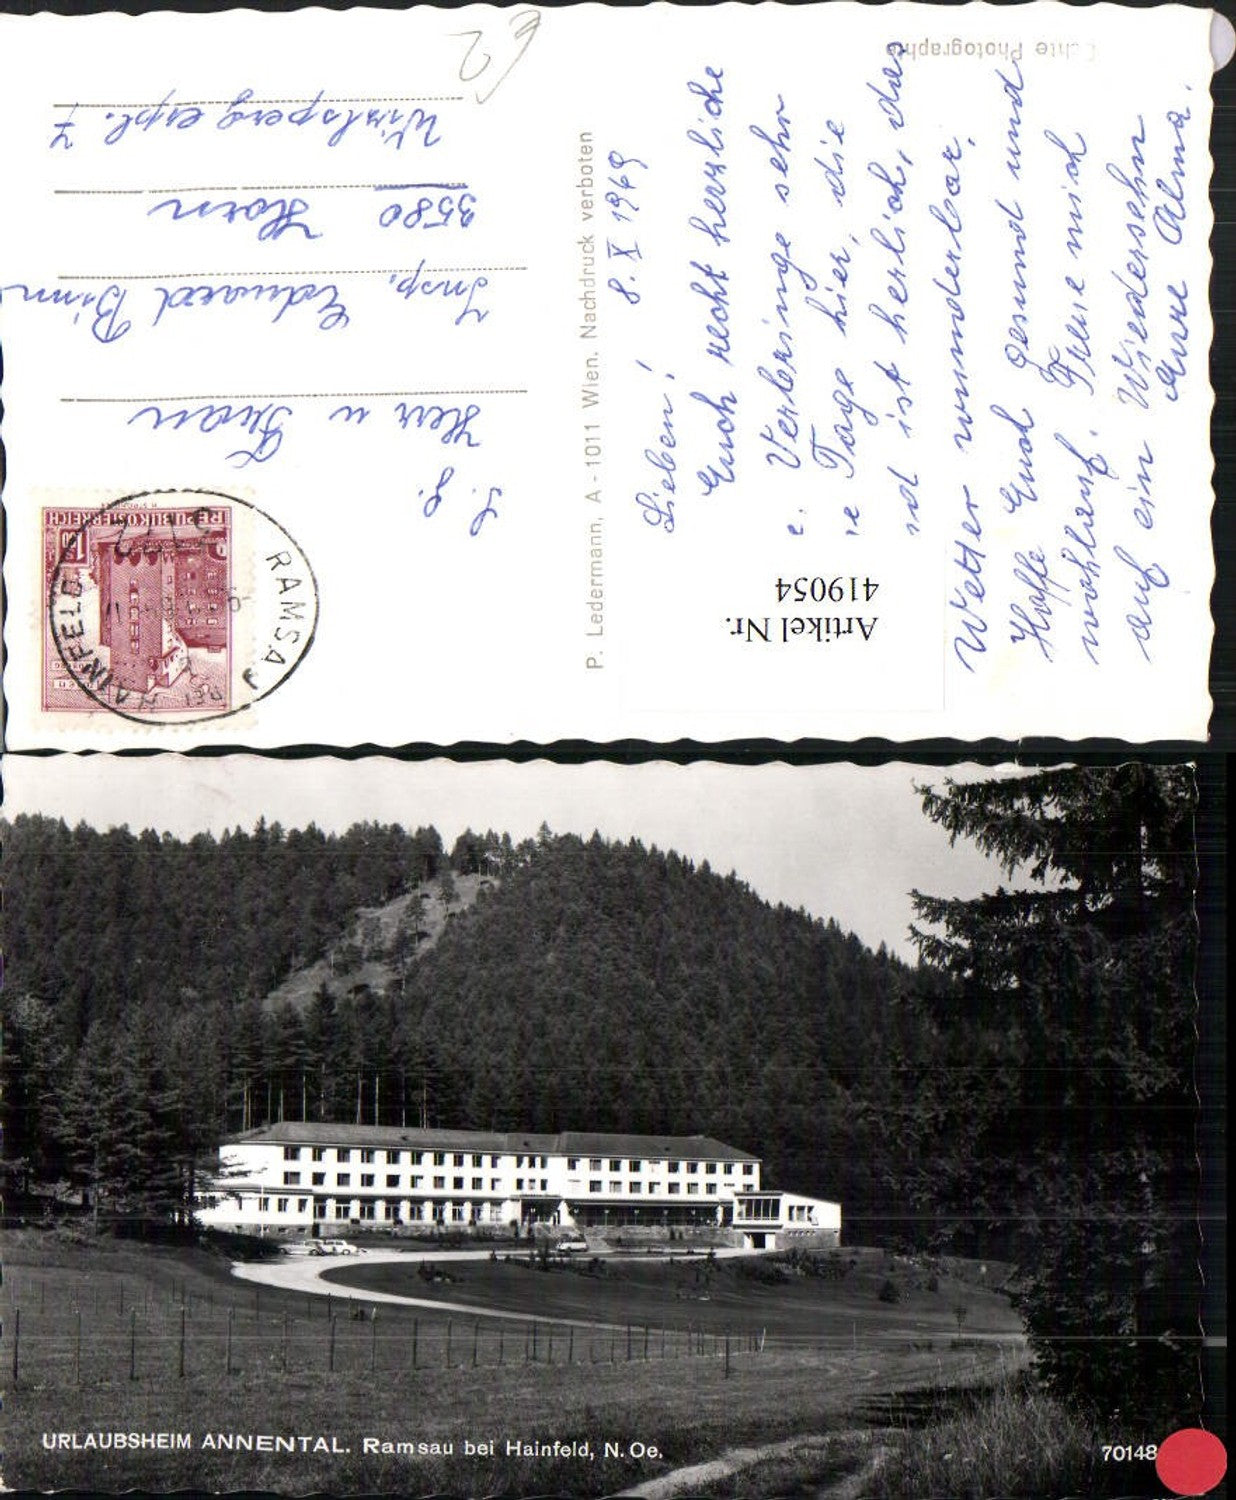 Echte Photographie
8. X 1969
Lieben!
Euch recht herzliche
Verbringe sehr
Tage hier, die
ist herlich, das
Wetter wunderbar.
Hoffe Euch gesund und
wohlauf. Freue mich
auf ein Wiedersehn
Eure Alma.
Artikel Nr.
419054
P. Ledermann, A - 1011 Wien. Nachdruck verboten
REPUBLIK ÖSTERREICH
1.50
RAMSAU
BEI HAINFELD
3172
Herr u Frau
Insp. Eduard
3580 Horn
7
€2
URLAUBSHEIM ANNENTAL. Ramsau bei Hainfeld, N. Oe.
70148